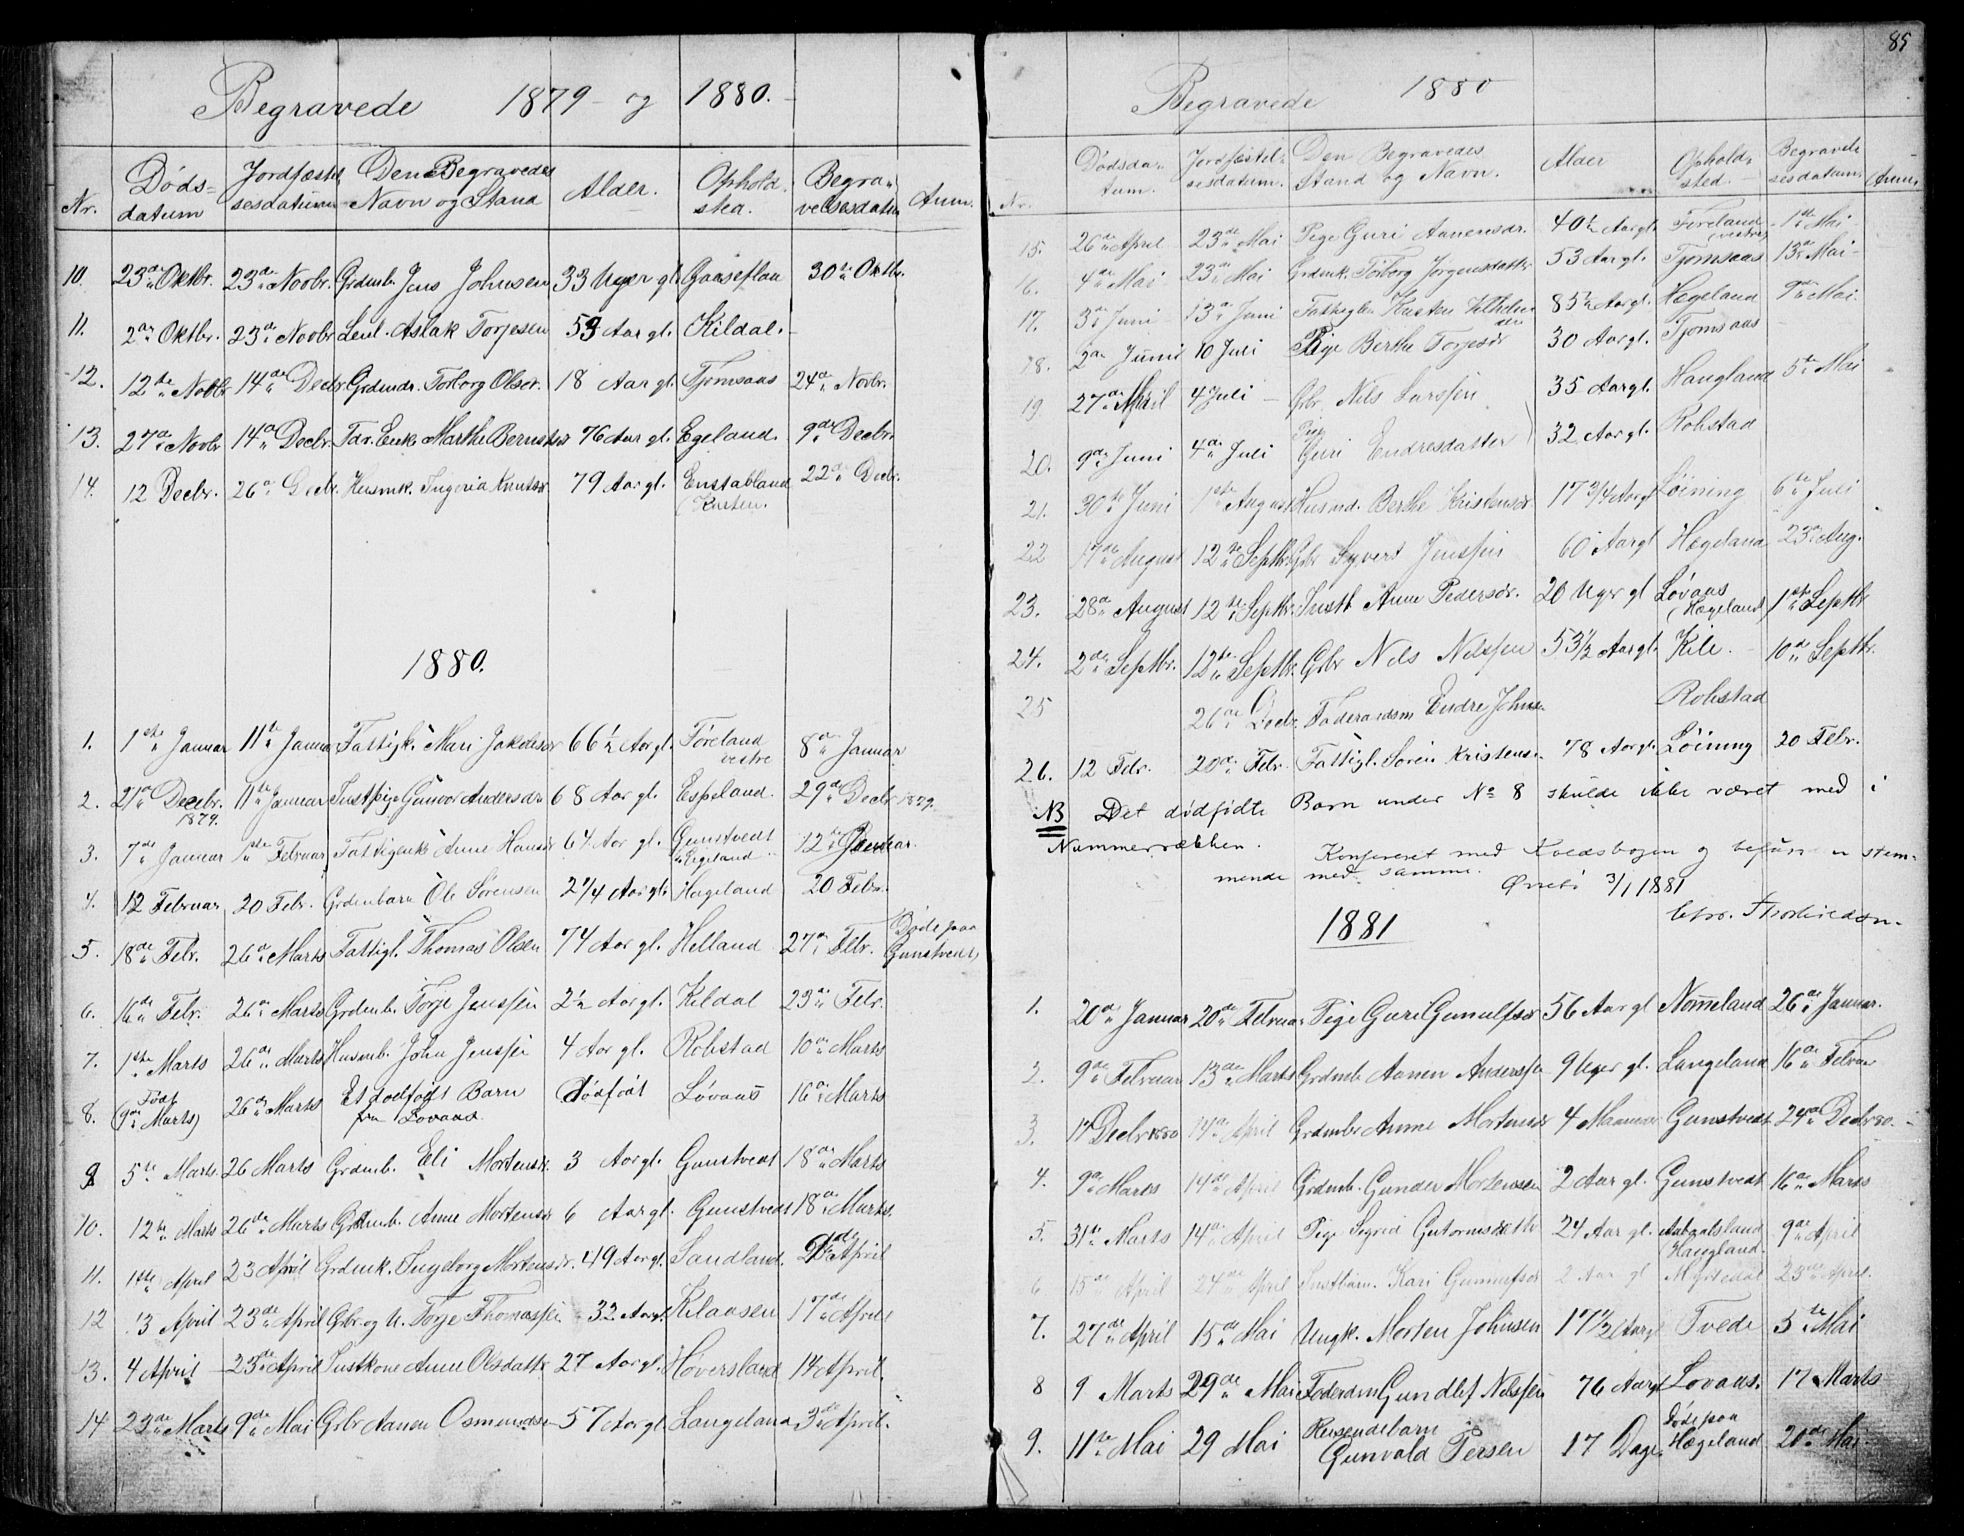 Begravede 1879 og 1880.
Nr. Dødsdatum Jordfæstelsesdatum Den Begravedes Navn og Stand Alder. Opholdsted. Begravelsesdatum Anm.
10. 23de Oktbr. 23de Novbr. Grdmb. Jens Johnsen 33 Uger gl. Gaaseflaa 30te Oktbr.
11. 2den Oktbr. 23de Novbr. Aslak Torjesen 53 Aar gl. Kildal.
12. 12te Novbr. 14de Decbr. Grdmdr. Torborg Olsdr. 18 Aar gl. Tjomsaas 24de Novbr.
13. 27de Novbr. 14de Decbr. Fdr. Enke Marthe Berntsdr 76 Aar gl. Egeland. 9de Decbr.
14. 12 Decbr. 26de Decbr. Husmk. Ingeria Knutsdr 79 Aar gl. Enstabland 22de Decbr.
1880.
1. 1ste Januar 11te Januar Fattigk. Mari Jakobsdr 66½ Aar gl. Føreland vestre 8de Januar
2. 21de Decbr. 1879. 11te Januar Instpige Gunvor Andersdr 68 Aar gl. Espeland. 29de Decbr. 1879.
3. 7de Januar 1ste Februar Fattigenke Anne Hansdr 64 Aar gl. Gunstvedt Hægeland 12te Januar.
4. 12 Februar 20 Febr. Grdmbarn Ole Sørensen 2¼ Aar gl. Hægeland 20 Febr.
5. 18de Febr. 26de Marts Fattigl. Thomas Olsen 74 Aar gl. Helland 27de Febr. Døde paa Gunstvedt
6. 16de Febr. 26de Marts Grdmb. Torje Jenssen 2½ Aar gl. Kildal 23de Febr.
7. 1ste Marts 26de Marts Husmb. John Jenssen 4 Aar gl. Robstad 10de Marts
8. Født (9de Marts) 26de Marts Et dødfødt Barn fra Løvaas. Dødfødt Løvaas 16de Marts
9 5te Marts 26 Marts Grdmb. Eli Mortensdr. 3 Aar gl. Gunstvedt 18de Marts
10. 12te Marts 26de Marts Grdmb. Anne Mortensdr 6 Aar gl. Gunstvedt 18de Marts.
11. 1ste April 23 April Grdmk. Ingeborg Mortensdr. 49 Aar gl. Sandland. April
12 13 April 23de April Gbr. og U. Torje Thomassen 32 Aar gl. Kilaasen 17de April
13. 4 April 23de April Instkone Anne Olsdatter 27 Aar gl. Høversland 14 April.
14 23de Marts 9de Mai Gbr Aanen Osmundsen 57 Aar gl. Langeland 3de April.
85
Begravede 1880
Nr. Dødsdatum. Jordfæstelsesdatum. Den Begravedes Stand og Navn. Alder Opholdssted. Begravelsesdatum. Anm.
15. 26de April 23de Mai Pige Guri Aanensdr. 40½ Aar gl. Føreland (vestre) 1ste Mai
16. 4de Mai 23de Mai Grdmk. Torborg Jørgensdatter 53 Aar gl. Tjomsaas 13de Mai
17. 3de Juni 13de Juni 85½ Aar gl. Hægeland Mai.
18. 2den Juni 10 Juli Pige Berthe Torjesdr 30 Aar gl. Tjomsaas
19 27de April 4 Juli Gbr Nils Larssen 35 Aar gl. Haugland 5te Mai
20. 9de Juni 4de Juli Pige Guri Endresdatter 32 Aar gl. Robstad
21. 30te Juni 1ste August Husmd. Berthe Kristensdr. 17 3/4 Aar gl Løining 6te Juli
22 17de August 12te Septbr. Gbr Syvert Jenssen 60 Aar gl Hægeland 23de Aug.
23. 28de August 12te Septbr. Instb Anne Pedersdr. 20 Uger gl Løvaas (Hægeland) 1ste Septbr
24. 2den Septbr. 12te Septbr. Gbr Nils Nilssen 53½ Aar gl. Kile. 10de Septbr.
25 26de Decbr. Føderaadsm Endre Johns. Robstad
26. 12 Febr. 20de Febr. Fattigl. Søren Kristens. 78 Aar gl. Løining 20 Febr.
NB Det dødfødte Barn under No 8 skulde ikke været med i
Nummerrækken.
Konfereret med Kaldsbogen og befunden stem-
mende med samme.
Øvrebø 3/1 1881
1881
1. 20de Januar 20de Februar Pige Guri Gunulfsdr 56 Aar gl Nomeland 26de Januar.
2. 9de Februar 13de Marts Grdmb Aanen Anderssen 9 Uger gl. Langeland 16de Februar
3. 17 Decbr 1880 14de April Grdmb Anne Mortensdr 4 Maaneder Gunstvedt 24de Decbr 80.
4. 9de Marts 14de April Grdmb. Gunder Mortenssen 2 Aar gl. Gunstvedt 16de Marts
5. 31te Marts 14de April Pige Sigrid Gutormsdatter 24 Aar gl. Aabaalsland (Haugland 9de April
6 15de April 24de April Instbarn. Kari Gunnufsdr 2 Aar gl Myrstedal 23de April.
7. 27de April 15de Mai Ungk. Morten Johnsen 17½ Aar gl Tvede 5te Mai
8 9 Marts 29de Mai Føderdm Gundlef Nilssen 76 Aar gl Løvaas. 17 Marts
9. 11te Mai 29 Mai Reisendebarn Gunvald Tersen 17 Dage. Døde paa Hægeland 20de Mai